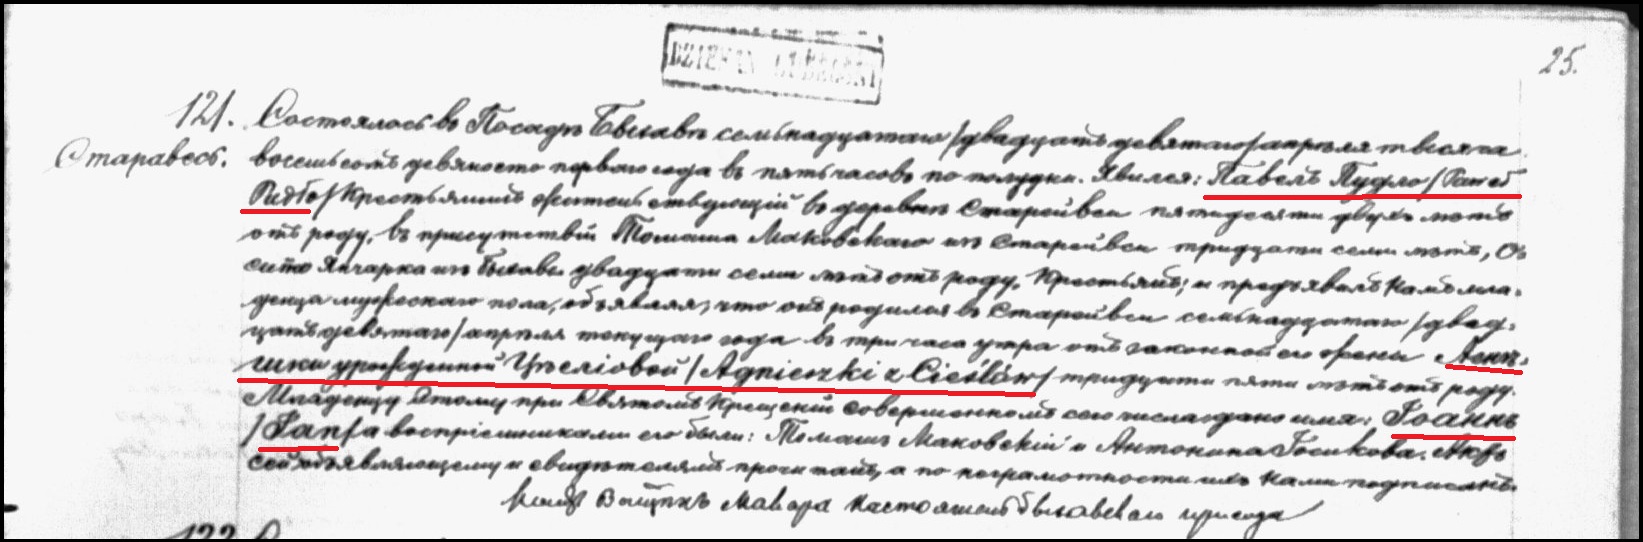 25.
121. Состоялось въ Посадѣ Бычавѣ семьнадцатаго /двадцать девятаго/ апрѣля тысяча
Старавесь. восемьсотъ девяносто перваго года въ пять часовъ по полудни. Явился: Павелъ Пудло /Paweł
Pudło/ Крестьянинъ жительствующій въ деревнѣ Старейвси пятидесяти двухъ лѣтъ
отъ роду, въ присутствіи Томаша Маковскаго изъ Старейвси тридцати семи лѣтъ,
изъ Бычавы двадцати семи лѣтъ отъ роду, Крестьянъ; и предъявилъ намъ мла-
денца мужескаго пола, объявляя, что онъ родился въ Старейвси семьнадцатаго /двад-
цать девятаго/ апрѣля текущаго года въ три часа утра отъ законной его жены Агнѣ-
шки урожденной Цѣсліовой /Agnieszki z Cieślów/ тридцати пяти лѣтъ отъ роду.
Младенцу этому при Святомъ Крещеніи совершенномъ сего числа дано имя: Іоаннъ
/Jan/ а воспріемниками его были: Томашъ Маковскій и Антонина. Актъ
сей объявляющему и свидѣтелямъ прочитанъ, а по неграмотности ихъ нами подписанъ.
Ксендзъ Настоятель Бычавскаго прихода
122